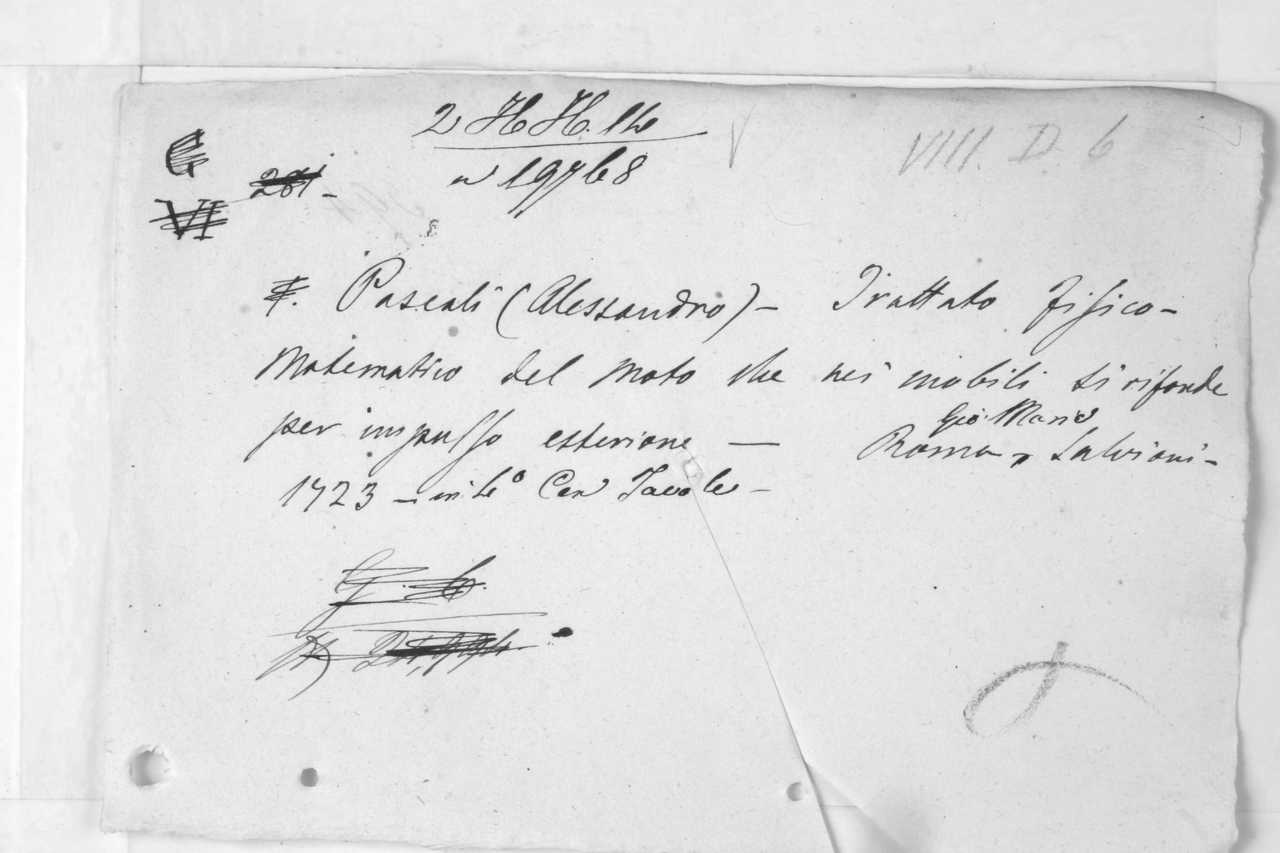 2 HH. 14
VIII. D. 6
G
VI
281 -
n 19768
Pascali (Alessandro) - Trattato fisico-
Matematico del moto che nei mobili si rifonde
per impulso esteriore — Roma, Gio: Maria Salvioni -
1723 - in 4º Con Tavole -